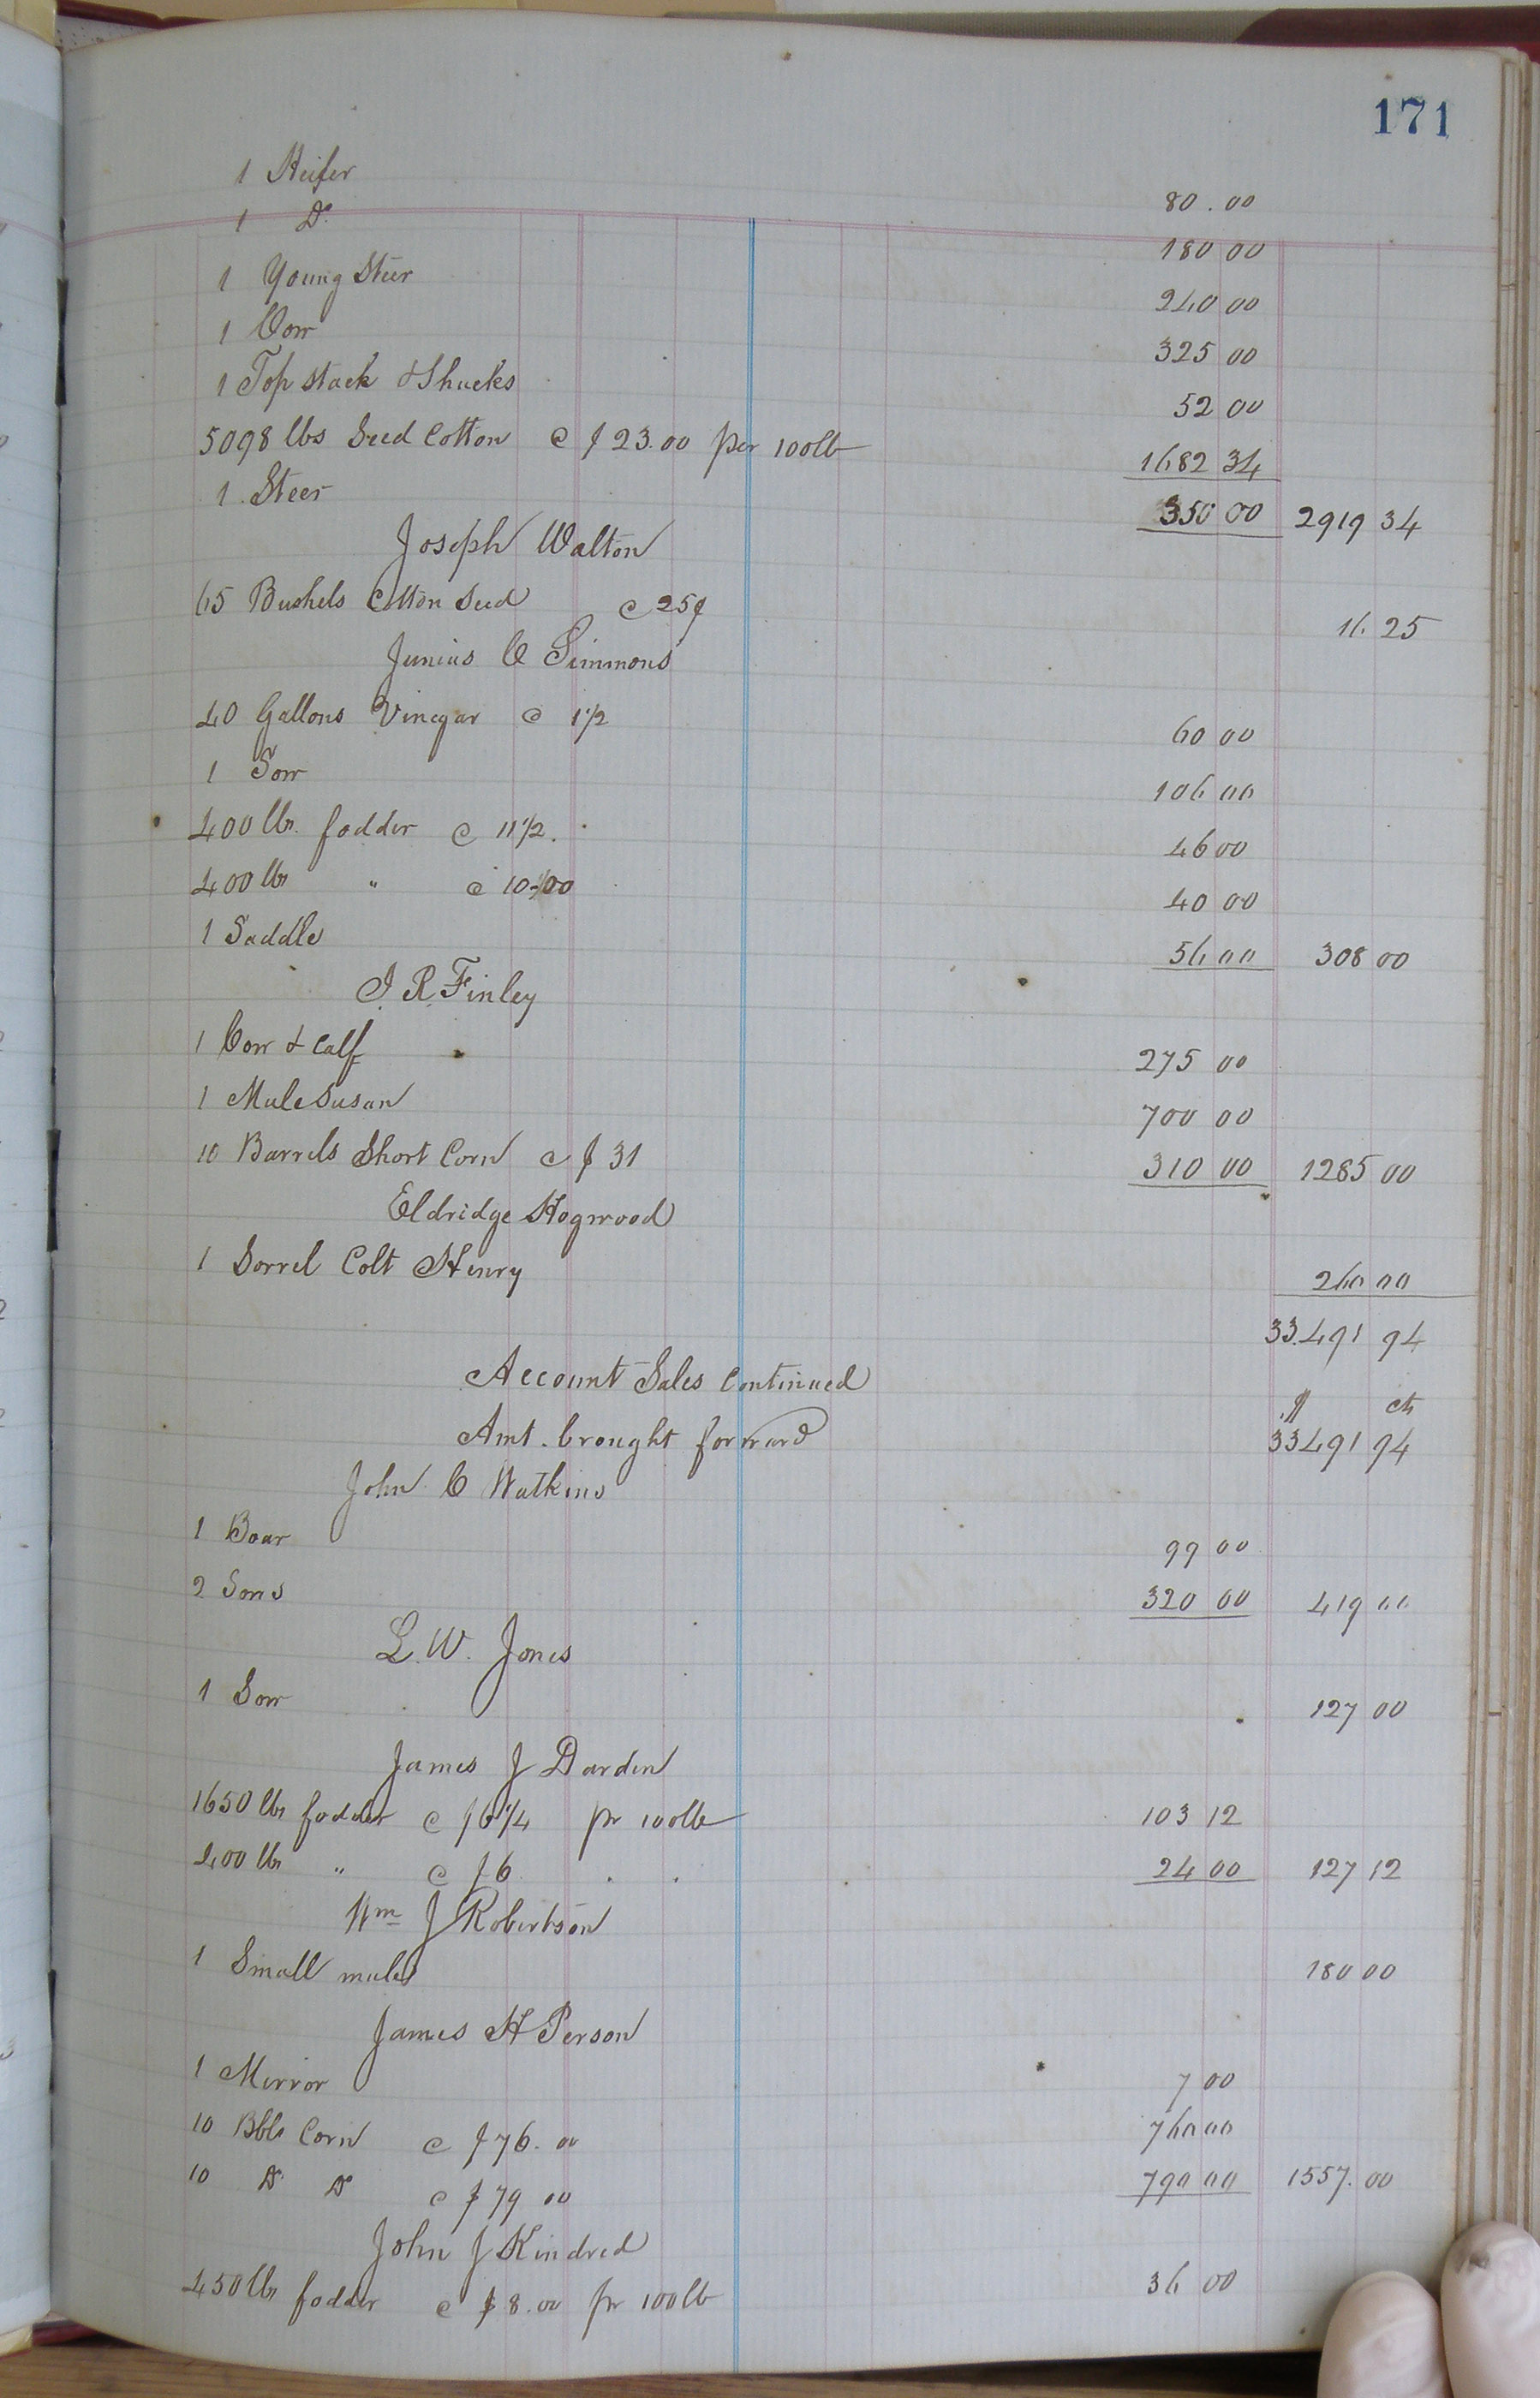 171
1 Heifer 80.00
1 Do 180 00
1 Young Steer 240 00
1 Cow 325 00
1 Top stack & Shucks 52 00
5098 lbs Seed Cotton @ $23.00 per 100lb 1682 34
1 Steer 350 00 2919 34
Joseph Walton
65 Bushels Cotton Seed @ 25¢ 16 25
Junius C Simmons
40 Gallons Vinegar @ 1 1/2 60 00
1 Sow 106 00
400 lbs. fodder @ 11 1/2. 46 00
400 lbs " @ 10.00 40 00
1 Saddle 56 00 308 00
J. R. Finley
1 Cow & Calf 275 00
1 Mule Susan 700 00
10 Barrels Short Corn @ $31 310 00 1285 00
Eldridge Hogwood
1 Sorrel Colt Henry 260 00
33.491 94
Account Sales Continued $ cts
Amt. brought forward 33491 94
John C Watkins
1 Boar 99 00
2 Sows 320 00 419 00
L. W. Jones
1 Sow 127 00
James J Darden
1650 lbs fodder @ $6 1/4 pr 100lb 103 12
400 lbs " @ $6 . . 24 00 127 12
Wm J Robertson
1 Small mule 180 00
James H Person
1 Mirror 7 00
10 Bbls Corn @ $76.00 760 00
10 Do Do @ $79 00 790 00 1557.00
John J Kindred
450 lbs fodder @ $8.00 pr 100lb 36 00